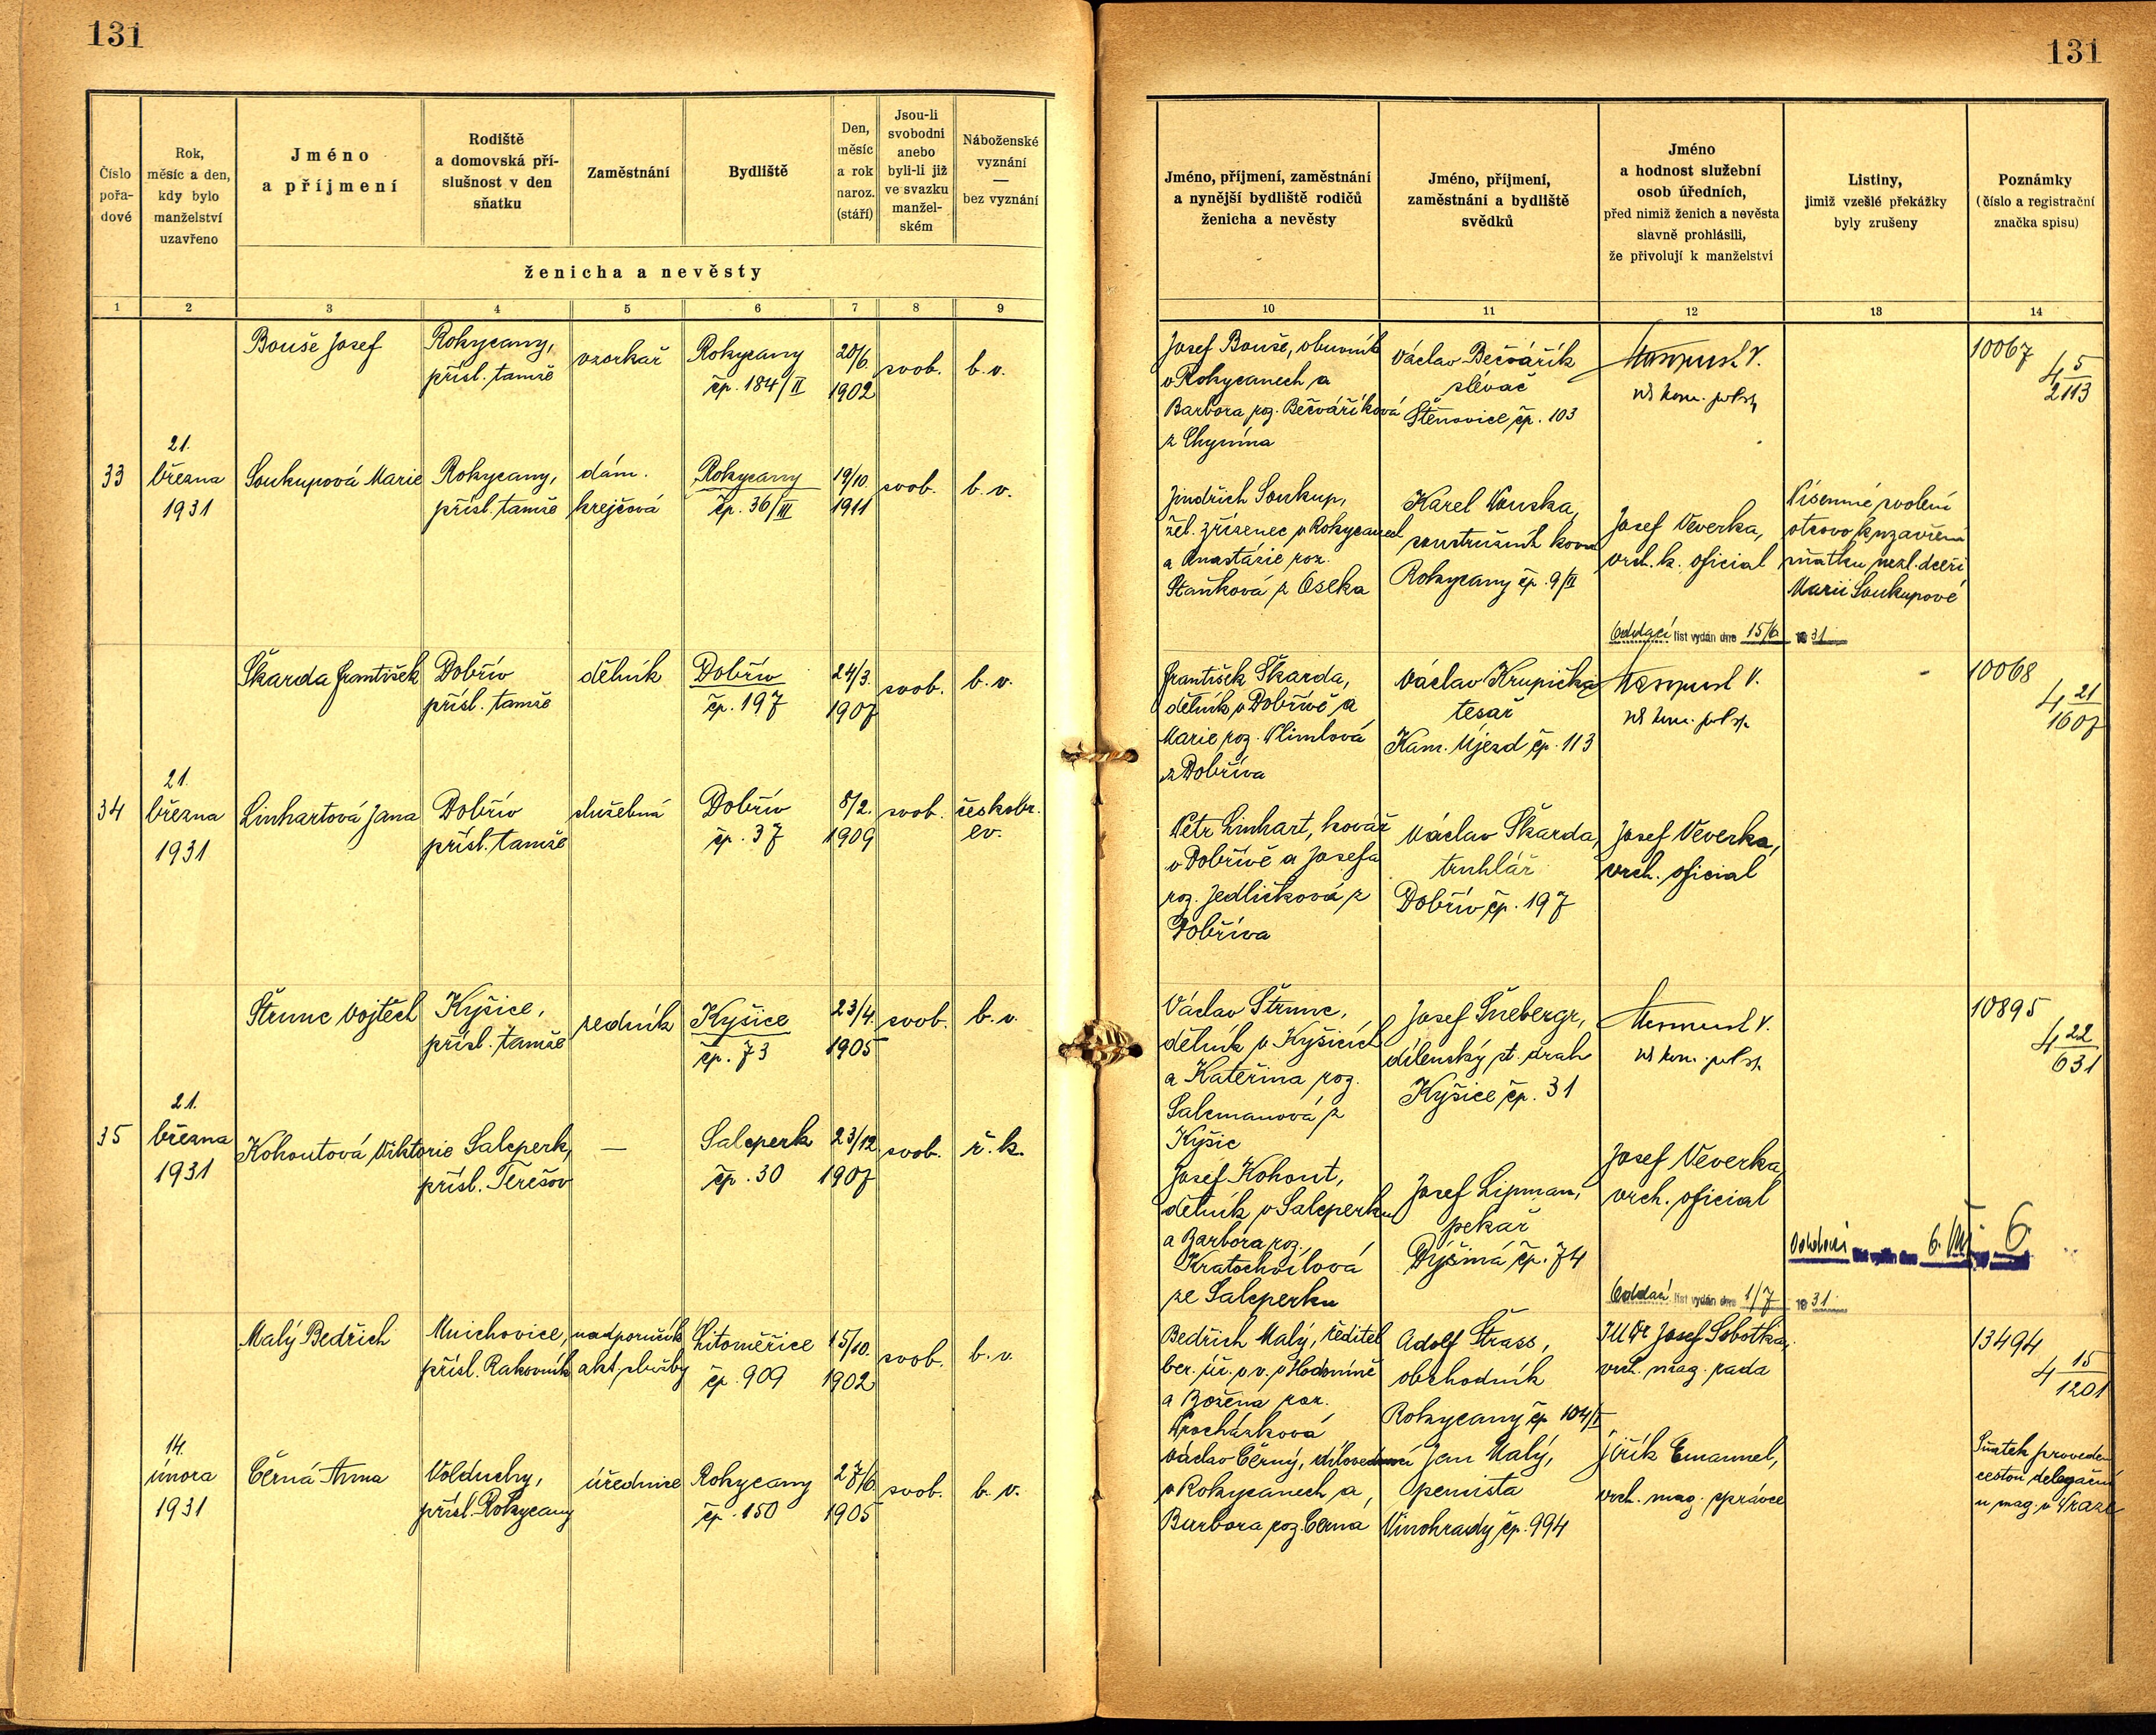 131
131
Číslo
pořa-
dové
Rok,
měsíc a den,
kdy bylo
manželství
uzavřeno
Jméno
a příjmení
Rodiště
a domovská pří-
slušnost v den
sňatku
Zaměstnání
Bydliště
Den,
měsíc
a rok
naroz.
(stáří)
Jsou-li
svobodni
anebo
byli-li již
ve svazku
manžel-
ském
Náboženské
vyznání
—
bez vyznání
ženicha a nevěsty
Jméno, příjmení, zaměstnání
a nynější bydliště rodičů
ženicha a nevěsty
Jméno, příjmení,
zaměstnání a bydliště
svědků
Jméno
a hodnost služební
osob úředních,
před nimiž ženich a nevěsta
slavně prohlásili,
že přivolují k manželství
Listiny,
jimiž vzešlé překážky
byly zrušeny
Poznámky
(číslo a registrační
značka spisu)
1 2 3 4 5 6 7 8 9
10 11 12 13 14
Bouše Josef
Rokycany,
přísl. tamže
vzorkař
Rokycany
čp. 184/II
20/6.
1902
svob.
b. v.
Josef Bouše, obuvník
v Rokycanech a
Barbora roz. Bečváříková
z Chynína
Václav Bečvářík
slévač
Štěnovice čp. 103
V.
10067
4 5
2113
33
21.
března
1931
Soukupová Marie
Rokycany,
přísl. tamže
dám.
krejčová
Rokycany
čp. 36/III
19/10.
1911
svob.
b. v.
Jindřich Soukup,
žel. zřízenec v Rokycanech
a Anastázie roz.
Staňková z Oseka
Karel Vouska,
soustružník kovu
Rokycany čp. 9/II
Josef Veverka,
vrch. k. oficial
Písemné svolení
otcovo k uzavření
sňatku nezl. dceři
Marii Soukupové
Oddací list vydán dne 15/6 1931
Škarda František
Dobřív
přísl. tamže
dělník
Dobřív
čp. 197
24/3.
1907
svob.
b. v.
František Škarda,
dělník v Dobřívě a
Marie roz.
z Dobříva
Václav Krupička
tesař
Kam. Újezd čp. 113
V.
10068
4 21
1607
34
21.
března
1931
Linhartová Jana
Dobřív
přísl. tamže
služebná
Dobřív
čp. 37
8/2.
1909
svob.
českobr.
ev.
Petr Linhart, kovář
v Dobřívě a Josefa
roz. Jedličková z
Dobříva
Václav Škarda,
truhlář
Dobřív čp. 197
Josef Veverka,
vrch. oficial
Štrunc Vojtěch
Kyšice,
přísl. tamže
zedník
Kyšice
čp. 73
23/4.
1905
svob.
b. v.
Václav Štrunc,
dělník v Kyšicích
a Kateřina roz.
Salcmanová z
Kyšic
Josef Šnebergr,
dílenský st. drah
Kyšice čp. 31
V.
10895
4 22
631
35
21.
března
1931
Kohoutová Viktorie
Salcperk,
přísl. Terešov
—
Salcperk
čp. 30
23/12.
1907
svob.
ř. k.
Josef Kohout,
dělník v Salcperku
a Barbora roz.
Kratochvílová
ze Salcperku
Josef Lipman,
pekař
Dýšiná čp. 74
Josef Veverka,
vrch. oficial
Oddací list vydán dne 6.
Oddací list vydán dne 1/7 1931
Malý Bedřich
Mnichovice,
přísl. Rakovník
nadporučík
akt. služby
Litoměřice
čp. 909
15/10.
1902
svob.
b. v.
Bedřich Malý, ředitel
ber. úř. v. v. v Hodoníně
a Božena roz.
Procházková
Adolf Strass,
obchodník
Rokycany čp. 104/I
JUDr Josef Sobotka,
vrch. mag. rada
13494
4 15
1201
14.
února
1931
Černá Anna
Volduchy,
přísl. Rokycany
úřednice
Rokycany
čp. 150
27/6
1905
svob.
b. v.
Václav Černý, dílovedoucí
v Rokycanech a
Barbora roz. Černá
Jan Malý,
Vinohrady čp. 994
Jiřík Emanuel,
vrch. mag. správce
Sňatek proveden
cestou delegační
u mag. v Praze